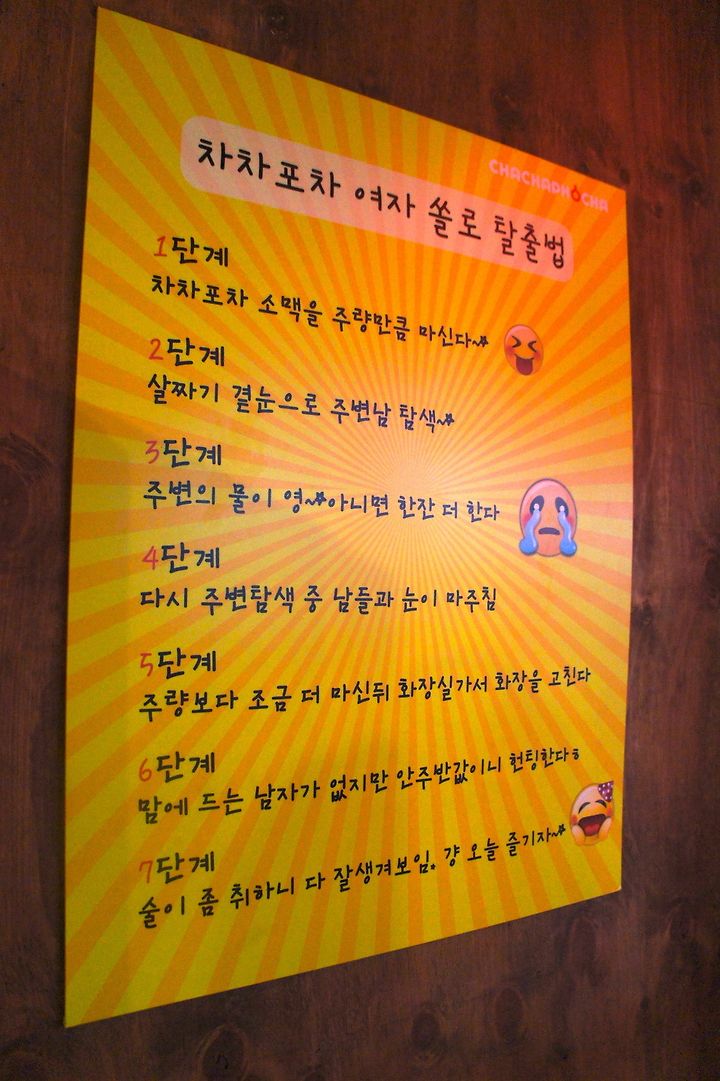 CHACHAPHOCHA
차차포차 여자 쏠로 탈출법
1단계
차차포차 소맥을 주량만큼 마신다~
2단계
살짜기 곁눈으로 주변남 탐색~
3단계
주변의 물이 영~아니면 한잔 더 한다
4단계
다시 주변탐색 중 남들과 눈이 마주침
5단계
주량보다 조금 더 마신뒤 화장실가서 화장을 고친다
6단계
맘에 드는 남자가 없지만 안주반값이니 헌팅한다ㅎ
7단계
술이 좀 취하니 다 잘생겨보임. 걍 오늘 즐기자~